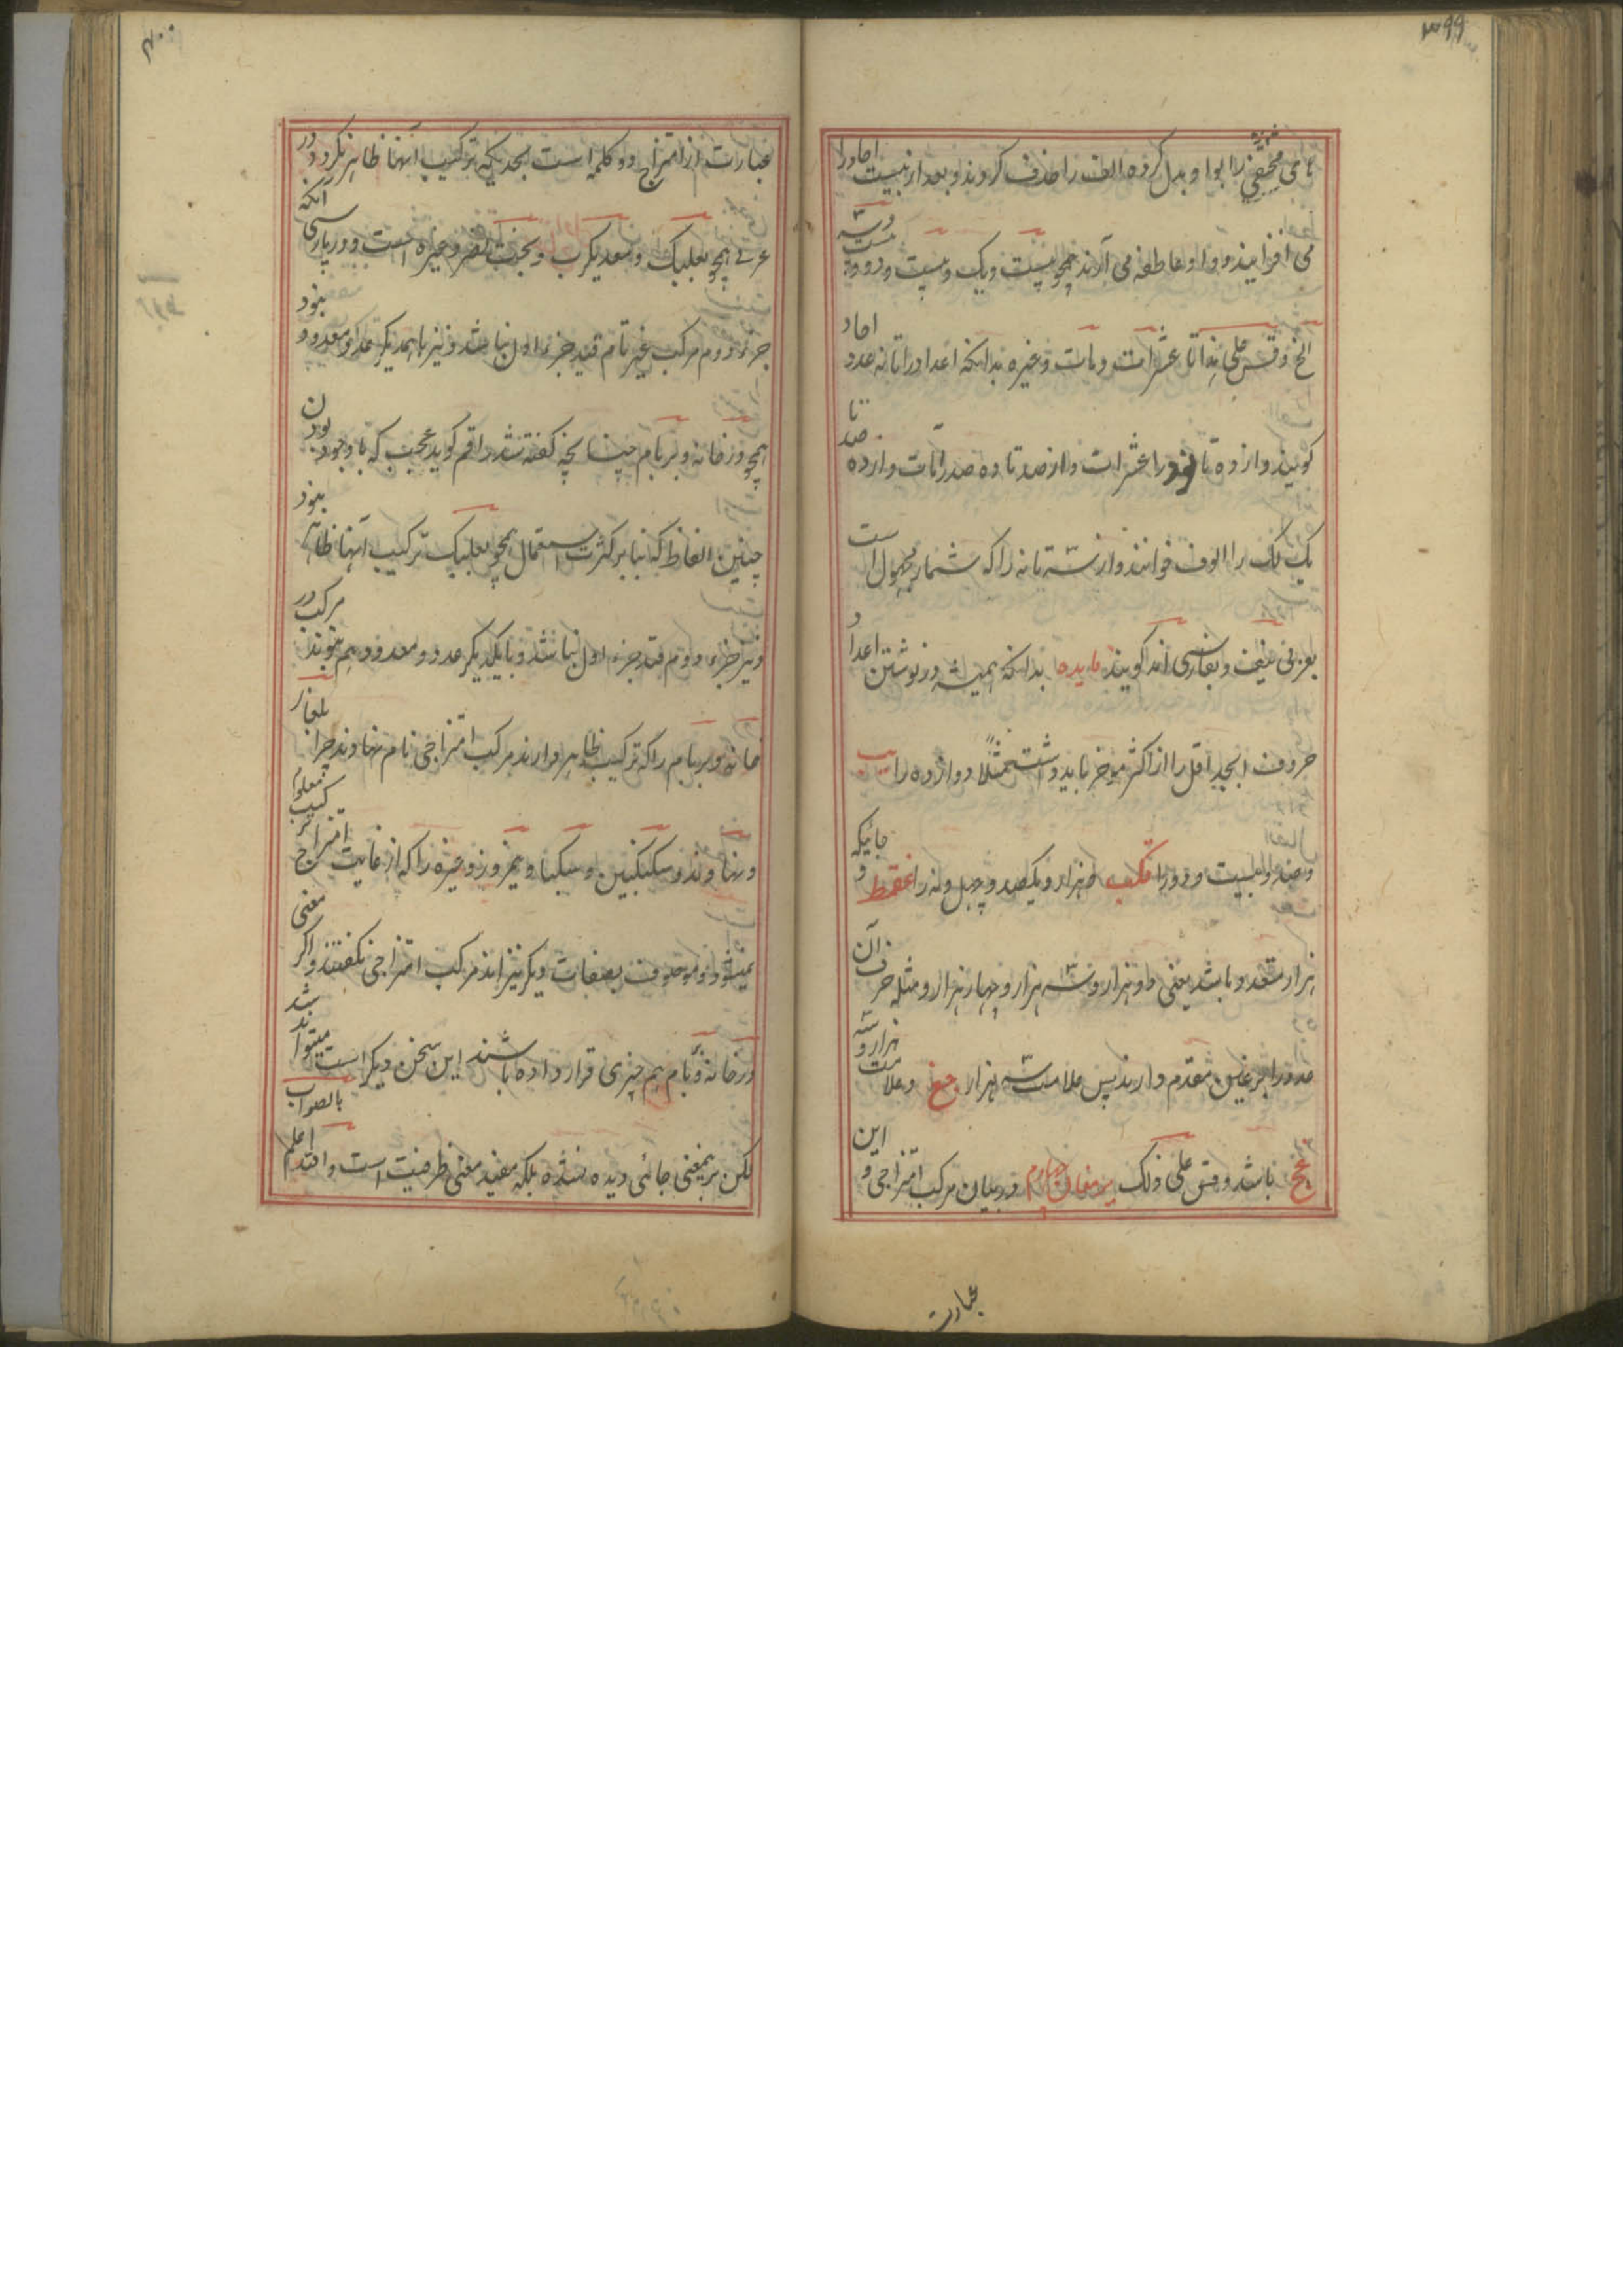 ۳۹۹
های مختفی را بواو بدل کرده الف را حذف کردند و بعد از بیست احاد را
می افزایند و واو عاطفه می آرند همچو بیست و یک و بیست و دو و بیست و سه
الخ و قس علی هذا تا عشرات و مات و غیره بدانکه اعداد را تا نه عدد احاد
گویند و از ده تا نود را عشرات و از صد تا نه صد را مات و از ده صد تا
یک لک را الوف خوانند و از سه تا نه را که شمار مجهول است
بعربی نیف و بفارسی اند گویند فایده بدانکه همیشه در نوشتن اعداد
حروف ابجد اقل را از اکثر موخر باید داشت مثلاً دوازده را یب
و صد و بیست و دو را قکب و هزار و یکصد و چهل و نه را غقمط و جائیکه
هزار متعدد باشد یعنی دو هزار و سه هزار و چهار هزار و مثله حرف آن
عدد را بر غین مقدم دارند پس علامت سه هزار جغ و علامت هزار و سه
غج باشد و قس علی ذلک در بیان مرکب امتزاجی و این
عبارت
۴۰۰
عبارت از امتزاج دو کلمه است بحدیکه ترکیب آنها ظاهر نگردد و در
عربی همچو بعلبک و معدیکرب و بخت نصر و غیره است و در پارسی آنکه
جزء دوم مرکب غیر تام قید جزء اول نباشد و نیز باهمدیگر عدد و معدود نبود
همچو درخانه و بر بام چنانچه گفته شد راقم گوید عجب که با وجود بودن
چنین الفاظ که بنا بر کثرت استعمال همچو بعلبک ترکیب آنها ظاهر نبود
و نیز جزء دوم قید جزء اول نباشد و با یکدیگر عدد و معدود هم نبوند مرکب در
خانه و بر بام را که ترکیب ظاهر دارند مرکب امتزاجی نام نهادند چرا بلغار
و نهاوند و سکنگبین و سکبا و نیمروز و غیره را که از غایت امتزاج ترکیب معلوم
نمیشود و موصوف بصفات دیگر نیز اند مرکب امتزاجی نگفتند و اگر معنی
درخانه و بام هم چیزی قرار داده باشند این سخن دیگر است میتواند شد
لکن بریمعنی جائی دیده نشده بلکه مفید معنی ظرفیت است والله اعلم بالصواب